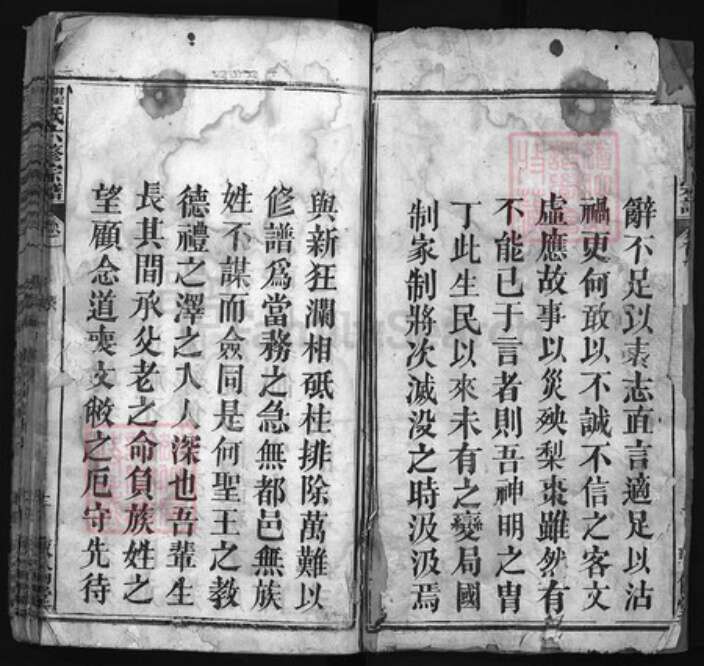 辭不足以表志直言適足以沽
禍更何敢以不誠不信之客文
虛應故事以災殃梨棗雖然有
不能已于言者則吾神明之胄
丁此生民以來未有之變局國
制家制將次滅没之時汲汲焉
與新狂瀾相砥柱排除萬難以
修譜爲當務之急無都邑無族
姓不謀而僉同是何聖王之教
德禮之澤之入人深也吾輩生
長其間承父老之命負族姓之
望顧念道喪文敝之厄守先待
氏六修宗譜